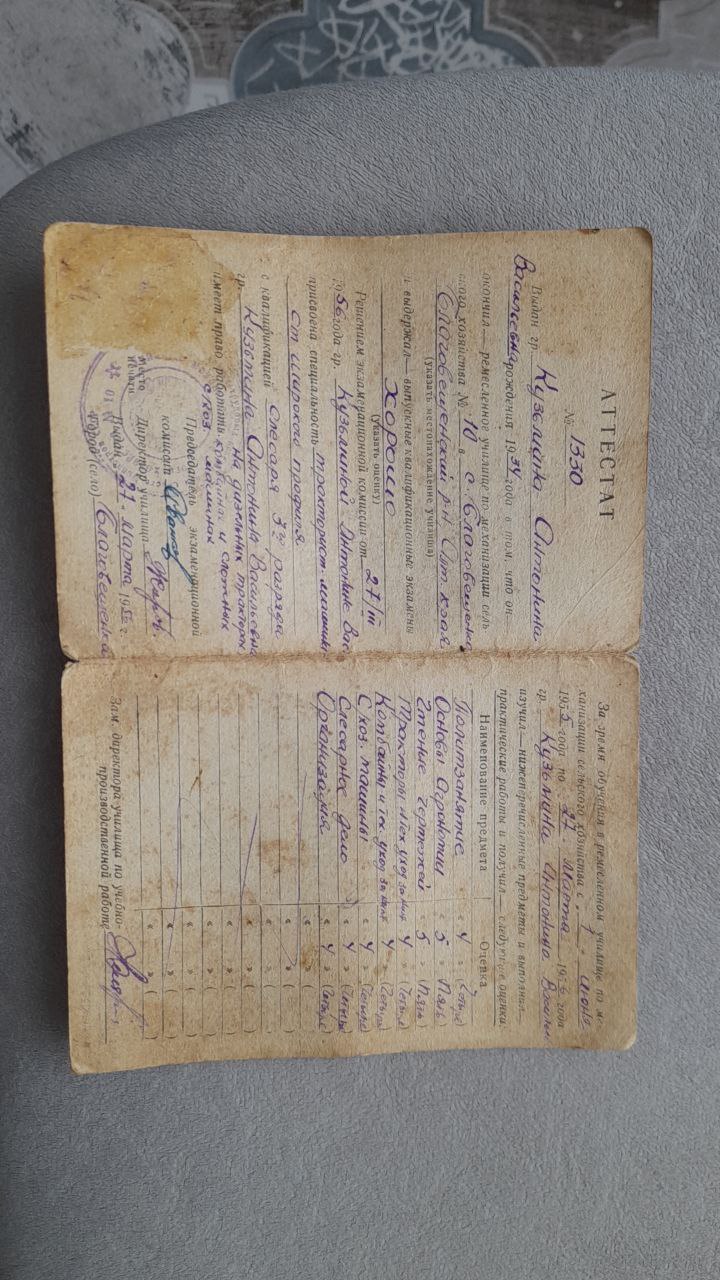 АТТЕСТАТ
№ 1330
Выдан гр. Кузьмина Антонина
Васильевна рождения 1934 года в том, что он
окончил — ремесленное училище по механизации сель
ского хозяйства № 10 в с Благовещенка
(указать местонахождение училища)
Благовещенский р-н Алт. края
и выдержал — выпускные квалификационные экзамены
хорошо
(указать оценку)
Решением экзаменационной комиссии от 27/III
1956 года гр. Кузьминой Антонине Вас
присвоена специальность тракторист-машинис
от широкого профиля
с квалификацией слесаря 3го разряда
гр. Кузьмина Антонина Васильевна
имеет право работать на дизельных тракторах
комбайнах и сложных
с.хоз. машинах
Председатель экзаменационной
комиссии
Директор училища
место
печати
Выдан „27" марта 1956 г.
Город (село) Благовещенка
За время обучения в ремесленном училище по ме-
ханизации сельского хозяйства с „1" июня
1955 года по „27" Марта 1956 года
гр. Кузьмина Антонина Васильев
изучил — нижеперечисленные предметы и выполнил—
практические работы и получил — следующие оценки
Наименование предмета Оценка
Политзанятие « 4 » (Четыре
Основы Агрономии « 5 » (Пять
Чтение чертежей « 5 » (Пять
Тракторы и тех. уход за ними « 4 » (Четыре
Комбайны и тех. уход за ними « 4 » (Четыре
С.хоз. машины « 4 » (Четыре
Слесарное дело « 4 » (Четыре
Организация « 4 » (Четыре
Зам. директора училища по учебно-
производственной работе